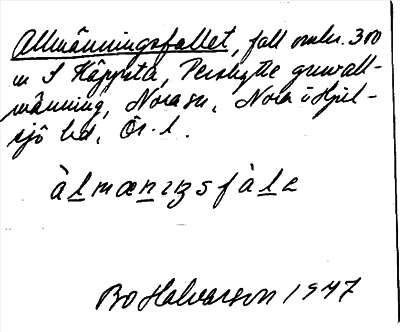 Allmänningsfallet, fall omkr. 300
m S Käppsta, Pershytte gruvall-
männing, Nora sn, Nora o Hjul-
sjö bd, Ör. l.
àlmænıŋsfàlə
Bo Halvarson 1947